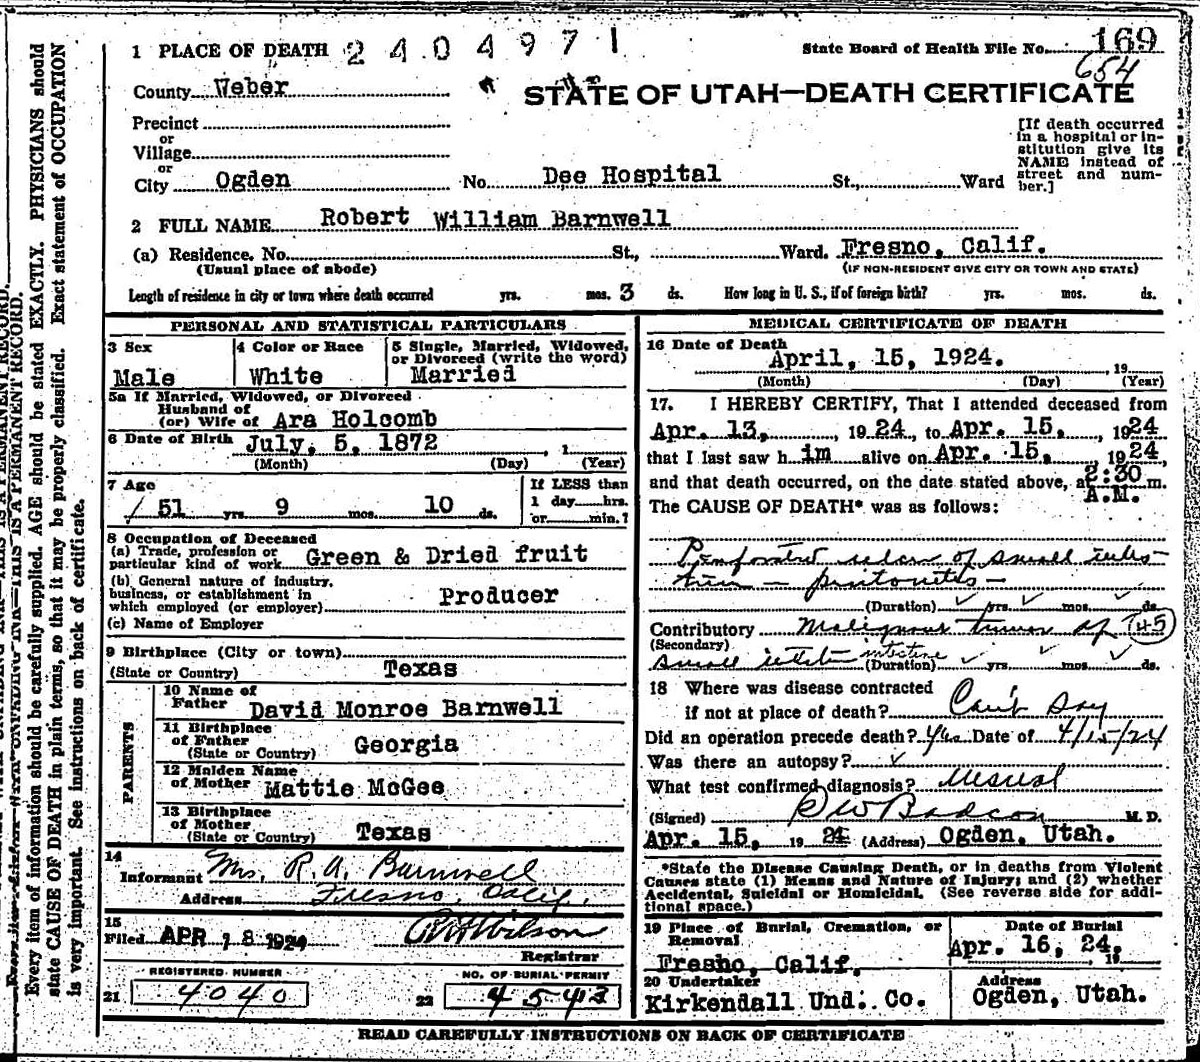 1 PLACE OF DEATH 2404971
State Board of Health File No. 169
654
County Weber
STATE OF UTAH—DEATH CERTIFICATE
Precinct
or
Village
or
City Ogden No. Dee Hospital St., Ward
[If death occurred
in a hospital or in-
stitution give its
NAME instead of
street and num-
ber.]
2 FULL NAME Robert William Barnwell
(a) Residence. No. St., Ward. Fresno, Calif.
(Usual place of abode) (IF NON-RESIDENT GIVE CITY OR TOWN AND STATE)
Length of residence in city or town where death occurred yrs. mos. 3 ds. How long in U. S., if of foreign birth? yrs. mos. ds.
PERSONAL AND STATISTICAL PARTICULARS
3 Sex
Male
4 Color or Race
White
5 Single, Married, Widowed,
or Divorced (write the word)
Married
5a If Married, Widowed, or Divorced
Husband of
(or) Wife of Ara Holcomb
6 Date of Birth July, 5, 1872, 1
(Month) (Day) (Year)
7 Age
51 yrs. 9 mos. 10 ds.
If LESS than
1 day hrs.
or min.?
8 Occupation of Deceased
(a) Trade, profession or
particular kind of work Green & Dried fruit
(b) General nature of industry,
business, or establishment in
which employed (or employer) Producer
(c) Name of Employer
9 Birthplace (City or town)
(State or Country) Texas
PARENTS
10 Name of
Father David Monroe Barnwell
11 Birthplace
of Father
(State or Country) Georgia
12 Maiden Name
of Mother Mattie McGee
13 Birthplace
of Mother
(State or Country) Texas
14
Informant Mrs. R. A. Barnwell
Address Fresno, Calif.
15
Filed APR 18 1924 Wilson
Registrar
REGISTERED NUMBER
21 4040
NO. OF BURIAL PERMIT
22 4543
MEDICAL CERTIFICATE OF DEATH
16 Date of Death
April, 15, 1924. 19
(Month) (Day) (Year)
17. I HEREBY CERTIFY, That I attended deceased from
Apr. 13, 1924, to Apr. 15, 1924
that I last saw h im alive on Apr. 15, 1924,
and that death occurred, on the date stated above, at 2:30 m.
A.M.
The CAUSE OF DEATH* was as follows:
Perforated ulcer of small intes-
tine — peritonitis —
(Duration) yrs. mos. ds.
Contributory Malignant tumor of 145
(Secondary)
small intestine (Duration) yrs. mos. ds.
18 Where was disease contracted
if not at place of death? Can't Say
Did an operation precede death? Yes Date of 4/15/24
Was there an autopsy?
What test confirmed diagnosis?
(Signed) M. D.
Apr. 15, 1924 (Address) Ogden, Utah.
*State the Disease Causing Death, or in deaths from Violent
Causes state (1) Means and Nature of Injury; and (2) whether
Accidental, Suicidal or Homicidal. (See reverse side for addi-
tional space.)
19 Place of Burial, Cremation, or
Removal
Fresno, Calif.
Date of Burial
Apr. 16, 24, 19
20 Undertaker
Kirkendall Und. Co.
Address
Ogden, Utah.
READ CAREFULLY INSTRUCTIONS ON BACK OF CERTIFICATE
Every item of information should be carefully supplied. AGE should be stated EXACTLY. PHYSICIANS should
state CAUSE OF DEATH in plain terms, so that it may be properly classified. Exact statement of OCCUPATION
is very important. See instructions on back of certificate.